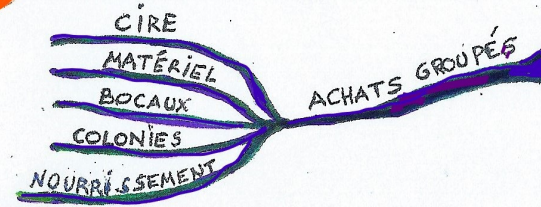 CIRE
MATÉRIEL
BOCAUX
COLONIES
NOURRISSEMENT
ACHATS GROUPÉS